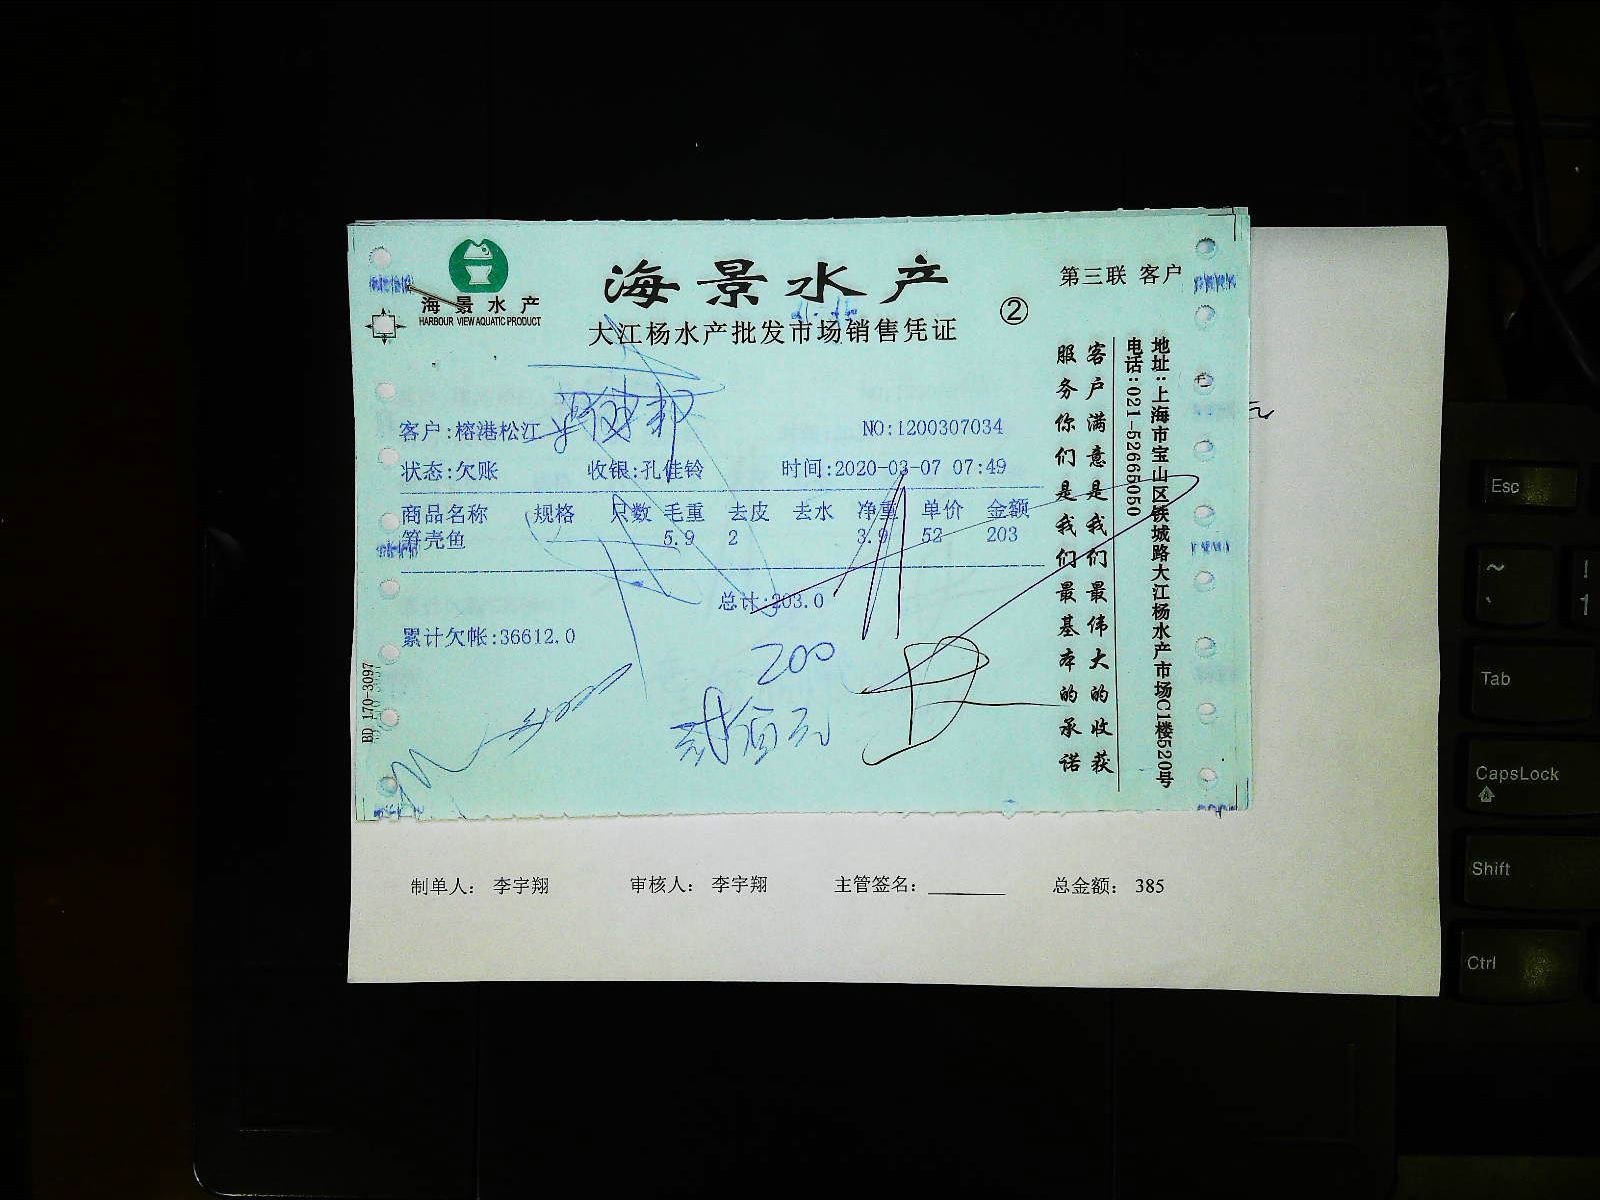 海景水产
HARBOUR VIEW AQUATIC PRODUCT
海景水产
大江杨水产批发市场销售凭证
②
第三联 客户
客户:榕港松江
NO:1200307034
状态:欠账 收银:孔佳铃 时间:2020-03-07 07:49
商品名称 规格 只数 毛重 去皮 去水 净重 单价 金额
笋壳鱼 5.9 2 3.9 52 203
总计:203.0
累计欠帐:36612.0
200
贰佰元
BD 170-3097
客户满意是我们最伟大的收获
服务你们是我们最基本的承诺
地址:上海市宝山区铁城路大江杨水产市场C1楼520号
电话:021-52665050
制单人: 李宇翔 审核人: 李宇翔 主管签名: 总金额: 385
Esc
~
`
!
1
Tab
CapsLock
Shift
Ctrl